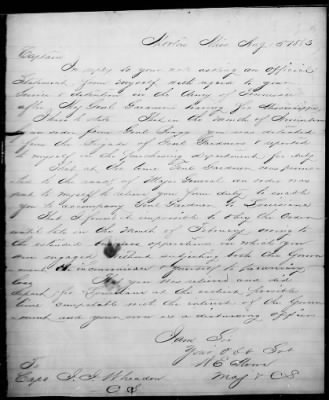 Captain
In reply to your note asking an Official
Statement from myself with regard to your
Service & detention in the Army of Tennessee
after Maj Genl Gardner leaving for Mississippi
I have to state That in the Month of
an order from Genl Bragg you were detached
from the Brigade of Genl Gardner & reported
to myself in the Department for duty
That at the time Genl Gardner was promoted
to the rank of Major General an order was
sent to myself to relieve you from duty to enable
you to accompany Genl Gardner to Louisiana
That I found it impossible to obey the Order
until late in the Month of February owing to
the extended business operations in which you
were engaged without subjecting both the Government
& yourself to pecuniary
loss That you were relieved and did
at the earliest possible
time compatible with the interest of the Government
and your own as a disbursing officer
I am Sir
Your Obt Svt
Maj & C.S.
To
Capt
C.S.